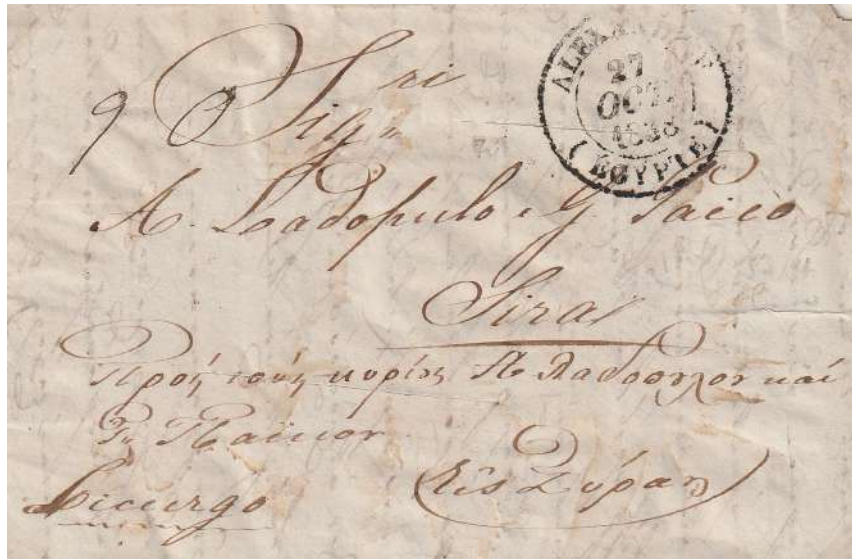 ALEXANDRIE
27
OCT.
(EGYPTE)
9 Sig.ri
A. Ladopulo & G. Paicco
Sira
Πρός τούς κυρίους Λαδόπουλον καί
Γ. Παΐκκον
Licurgo
Εἰς Σύραν